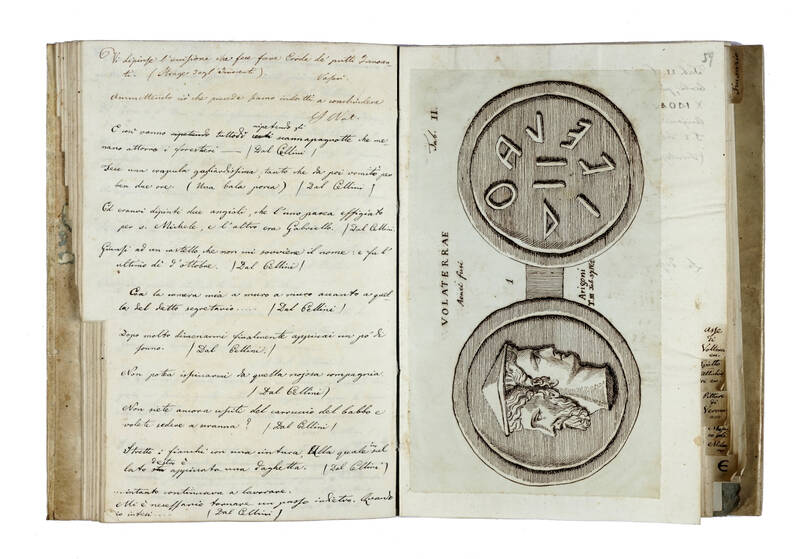 Vi dipinse l'uccisione che fece fare Erode de' putti Innocen-
ti. (Strage degli Innocenti).
Vasari.
Ammettendo ciò che precede siamo indotti a conchiudere
E così vanno ripetendo tuttodì ripetendo sti scannapagnotte che me-
nano attorno i forestieri — | Dal Cellini |
Fece una crapula gagliardissima, tanto che da poi vomitò per
ben due ore. (Una bala porca) | Dal Cellini |
Ed eranvi dipinte due angioli, che l'uno pareva effigiato
per S. Michele, e l'altro era Gabriello. | Dal Cellini.
Giunsi ad un castello, che non mi sovviene il nome: e fu l'
ultimo dì d'ottobre. | Dal Cellini |
Con la camera mia a muro a muro accanto a quel-
la del detto segretario..... | Dal Cellini |
Dopo molto dimenarmi finalmente appiccai un po' di
sonno. | Dal Cellini. |
Non potea ispiccarmi da quella nojosa compagnia.
| Dal Cellini |
Non siete ancora usciti del carruccio del babbo e
volete sedere a scranna? | Dal Cellini |
Stretto i fianchi con una cintura, alla quale in sul
lato destro è appiccata una daghetta. (Dal Cellini)
.. intanto continuava a lavorare.
Mi è necessario tornare un passo indietro. Quando
io intesi..... | Dal Cellini |
59
Tab. II.
VOLATERRAE
1
Arigoni
Asse
di
Volterra
Pitture
di
Verona
€